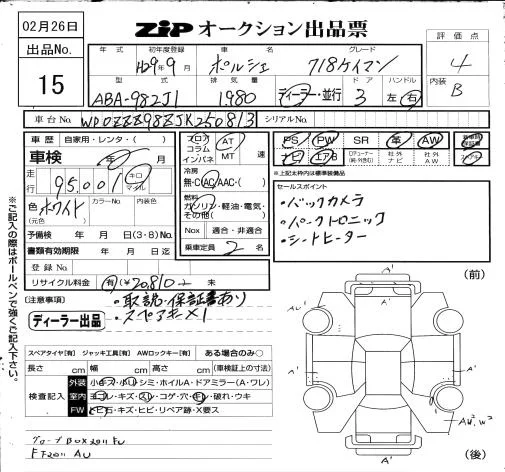 02月26日
ZIP オークション出品票
出品No.
15
評価点
4
内装
B
年式
初年度登録
車名
グレード
H29年9月
ポルシェ
718ケイマン
型式
排気量
ドア
ハンドル
ABA-982J1
1980
ディーラー・並行
3
左・右
車台No.
WP0ZZZ98ZJK250813
シリアルNo.
車歴
自家用・レンタ・( )
車検
年 月
走行
95,001
キロ
マイル
色
(元色)
ホワイト
カラーNo.
内装色
予備検 年 月 日(3・8)No.
書類有効期限 年 月 日迄
登録No.
リサイクル料金
有(¥20,810-) 未
フロア
コラム
インパネ
AT
MT
速
冷房
無・C・AC・AAC・( )
燃料
ガソリン・軽油・電気・
その他( )
Nox 適合・非適合
乗車定員 2 名
PS
PW
SR
革
AW
ナビ
エアB
社外
ナビ
社外
AW
※上記太枠内は標準装備品
セールスポイント
・バックカメラ
・パークトロニック
・シートヒーター
(注意事項)
・取説・保証書あり
・スペアキー×1
ディーラー出品
※ご記入の際はボールペンで強くご記入下さい。
スペアタイヤ[有] ジャッキ工具[有] AWロックキー[有] ある場合のみ○
長さ cm 幅 cm 高さ cm (車検証上の寸法)
検査記入
外装
小キズ・小凹・シミ・ホイルA・ドアミラー(A・ワレ)
室内
ヨゴレ・キズ・スレ・コゲ・穴・キレ・破れ・ウキ
FW
トビ石・キズ・ヒビ・リペア跡・X要ス
(前)
(後)
A'
A'
A'
A'